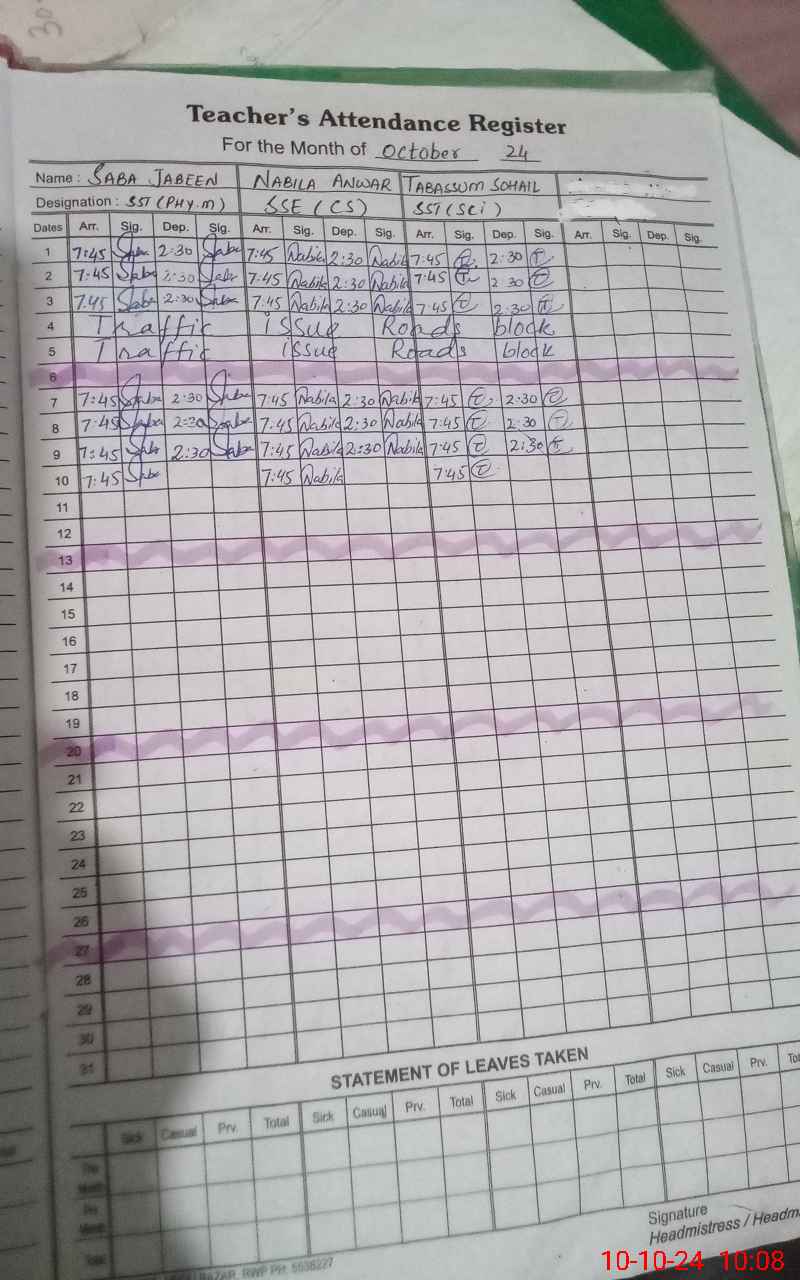 30
Teacher's Attendance Register
For the Month of October 24
Name : SABA JABEEN NABILA ANWAR TABASSUM SOHAIL
Designation : SST (PHY.M) SSE (CS) SST (Sci)
Dates Arr. Sig. Dep. Sig. Arr. Sig. Dep. Sig. Arr. Sig. Dep. Sig. Arr. Sig. Dep. Sig.
1 7:45 Saba 2:30 Saba 7:45 Nabila 2:30 Nabila 7:45 T 2:30 T
2 7:45 Saba 2:30 Saba 7:45 Nabila 2:30 Nabila 7:45 T 2:30 T
3 7:45 Saba 2:30 Saba 7:45 Nabila 2:30 Nabila 7:45 T 2:30 T
4 Traffic issue Roads block
5 Traffic issue Roads block
6
7 7:45 Saba 2:30 Saba 7:45 Nabila 2:30 Nabila 7:45 T 2:30 T
8 7:45 Saba 2:30 Saba 7:45 Nabila 2:30 Nabila 7:45 T 2:30 T
9 7:45 Saba 2:30 Saba 7:45 Nabila 2:30 Nabila 7:45 T 2:30 T
10 7:45 Saba 7:45 Nabila 7:45 T
11
12
13
14
15
16
17
18
19
20
21
22
23
24
25
26
27
28
29
30
31
STATEMENT OF LEAVES TAKEN
Sick Casual Prv. Total Sick Casual Prv. Total Sick Casual Prv. Total Sick Casual Prv. Tot
Month
Month
Total
Signature
Headmistress / Headm
BAZAR, RWP PH: 5538227
10-10-24 10:08